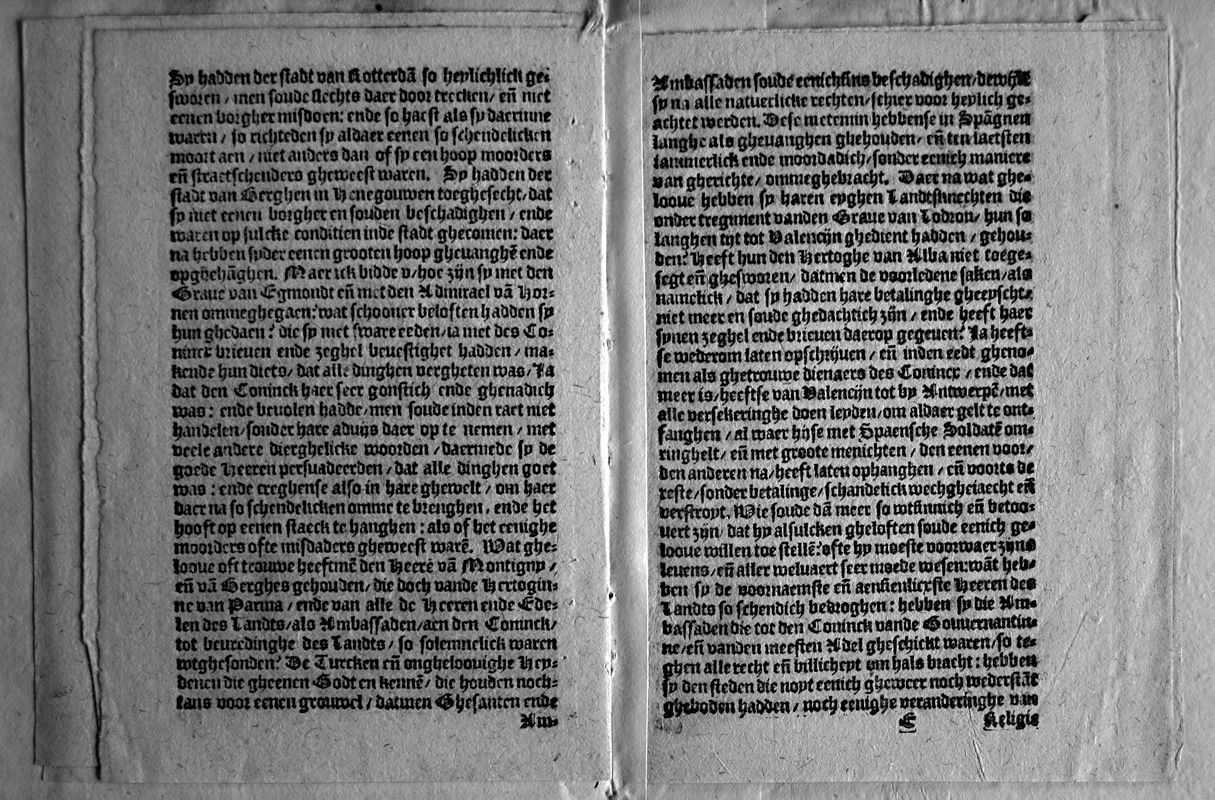 Sy hadden der stadt van Rotterdā so heylichlick ge-
sworen / men soude slechts daer door trecken / eñ niet
eenen borgher misdoen: ende so haest als sy daerinne
waren / so richteden sy aldaer eenen so schendelicken
moort aen / niet anders dan of sy een hoop moorders
eñ straetschenders gheweest waren. Sy hadden der
stadt van Berghen in Henegouwen toeghesecht / dat
sy niet eenen borgher en souden beschadighen / ende
waren op sulcke conditien inde stadt ghecomen: daer
na hebben syder eenen grooten hoop gheuanghē ende
opghehāghen. Maer ick bidde v / hoe zijn sy met den
Graue van Egmondt eñ met den Admirael vā Hor-
nen ommeghegaen? wat schooner beloften hadden sy
hun ghedaen? die sy met sware eeden / ia met des Co-
nincx brieuen ende zeghel beuestighet hadden / ma-
kende hun diets / dat alle dinghen vergheten was / Ja
dat den Coninck haer seer gonstich ende ghenadich
was: ende beuolen hadde / men soude inden raet niet
handelen / sonder hare aduijs daer op te nemen / met
veele andere dierghelicke woorden / daermede sy de
goede Heeren persuadeerden / dat alle dinghen goet
was: ende creghense also in hare ghewelt / om haer
daer na so schendelicken omme te brenghen / ende het
hooft op eenen staeck te hanghen: als of het eenighe
moorders ofte misdaders gheweest warē. Wat ghe-
looue oft trouwe heeftmē den Heere vā Montigny /
eñ vā Berghes gehouden / die doch vande Hertogin-
ne van Parma / ende van alle de Heeren ende Ede-
len des Landts / als Ambassaden / aen den Coninck /
tot beureedinghe des Landts / so solemnelick waren
wtghesonden? De Turcken eñ ongheloouighe Hey-
denen die gheenen Godt en kennē / die houden noch-
tans voor eenen grouwel / datmen Ghesanten ende
Am-
Ambassaden soude eenichsins beschadighen / dewijle
sy na alle natuerlicke rechten / schier voor heylich ge-
achtet werden. Dese metemin hebbense in Spāgnen
langhe als gheuanghen ghehouden / eñ ten laetsten
iammerlick ende moordadich / sonder eenich maniere
van gherichte / ommeghebracht. Daer na wat ghe-
looue hebben sy haren eyghen Landtsknechten die
onder tregiment vanden Graue van Lodron / hun so
langhen tijt tot Valencijn ghedient hadden / gehou-
den? Heeft hun den Hertoghe van Alba niet toege-
segt eñ ghesworen / datmen de voorledene saken / als
namelick / dat sy hadden hare betalinghe gheeyscht /
niet meer en soude ghedachtich zijn / ende heeft haer
synen zeghel ende brieuen daerop gegeuen? Ja heeft-
se wederom laten opschrijuen / eñ inden eedt gheno-
men als ghetrouwe dienaers des Conincx / ende dat
meer is / heeftse van Valencijn tot by Antwerpē / met
alle versekeringhe doen leyden / om aldaer gelt te ont-
fanghen / al waer hijse met Spaensche Soldatē om-
ringhelt / eñ met groote menichten / den eenen voor /
den anderen na / heeft laten ophanghen / eñ voorts de
reste / sonder betalinge / schandelick wechgheiaecht eñ
verstroyt. Wie soude dā meer so wtsinnich eñ betoo-
uert zijn / dat hy alsulcken gheloften soude eenich ge-
looue willen toe stellē? ofte hy moeste voorwaer zijns
leuens / eñ aller weluaert seer moede wesen: wāt heb-
ben sy de voornaemste eñ aensienlicxste Heeren des
Landts so schendich bedroghen: hebben sy die Am-
bassaden die tot den Coninck vande Gouuernantin-
ne / eñ vanden meesten Adel gheschickt waren / so te-
ghen alle recht eñ billicheyt om hals bracht: hebben
sy den steden die noyt eenich gheweer noch wederstāt
gheboden hadden / noch eenighe veranderinghe van
E Religie